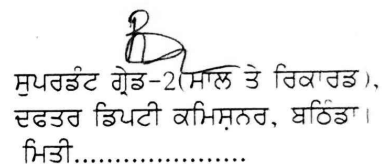 ਸੁਪਰਡੰਟ ਗ੍ਰੇਡ-2(ਮਾਲ ਤੇ ਰਿਕਾਰਡ),
ਦਫਤਰ ਡਿਪਟੀ ਕਮਿਸ਼ਨਰ, ਬਠਿੰਡਾ।
ਮਿਤੀ......................